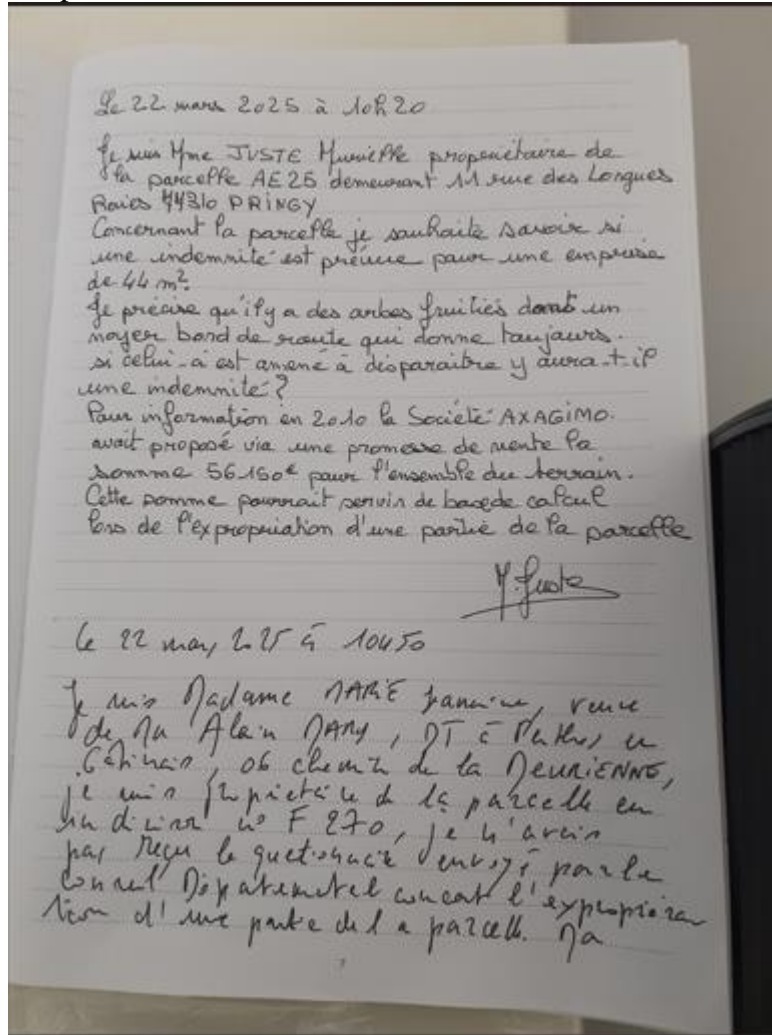 Le 22 mars 2025 à 10h20
Je suis Mme JUSTE Murielle propriétaire de
la parcelle AE25 demeurant 11 rue des Longues
Raies 77310 PRINGY
Concernant la parcelle je souhaite savoir si
une indemnité est prévue pour une emprise
de 44 m².
Je précise qu'il y a des arbes fruitiés dont un
noyer bord de route qui donne toujours.
si celui-ci est amené à disparaitre y aura-t-il
une indemnité?
Pour information en 2010 la Société AXAGIMO.
avait proposé via une promesse de vente la
somme 56150€ pour l'ensemble du terrain.
Cette somme pourrait servir de base de calcul
lors de l'expropriation d'une partie de la parcelle
M. Juste
Le 22 mars 2025 à 10h50
Je suis Madame MARIE, veuve
de Alain MARY, à Perthes en
Gâtinais, 06 chemin de la
je suis propriétaire de la parcelle en
n° F 270, je n'avais
pas reçu le envoyé par le
Conseil l'expropria
tion d'une partie de la parcelle. Ma